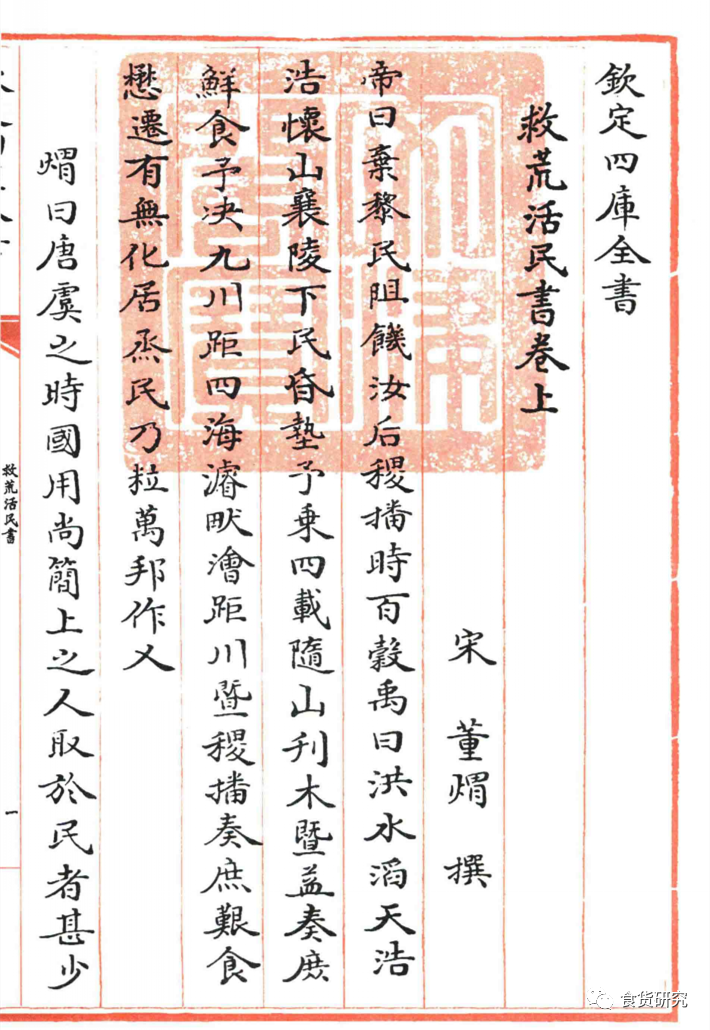 欽定四庫全書
救荒活民書卷上
宋 董煟 撰
帝曰棄黎民阻饑汝后稷播時百穀禹曰洪水滔天浩
浩懷山襄陵下民昏墊予乗四載隨山刋木暨益奏庶
鮮食予決九川距四海濬畎澮距川暨稷播奏庶艱食
懋遷有無化居烝民乃粒萬邦作乂
煟曰唐虞之時國用尚簡上之人取於民者甚少
救荒活民書
一
食货研究